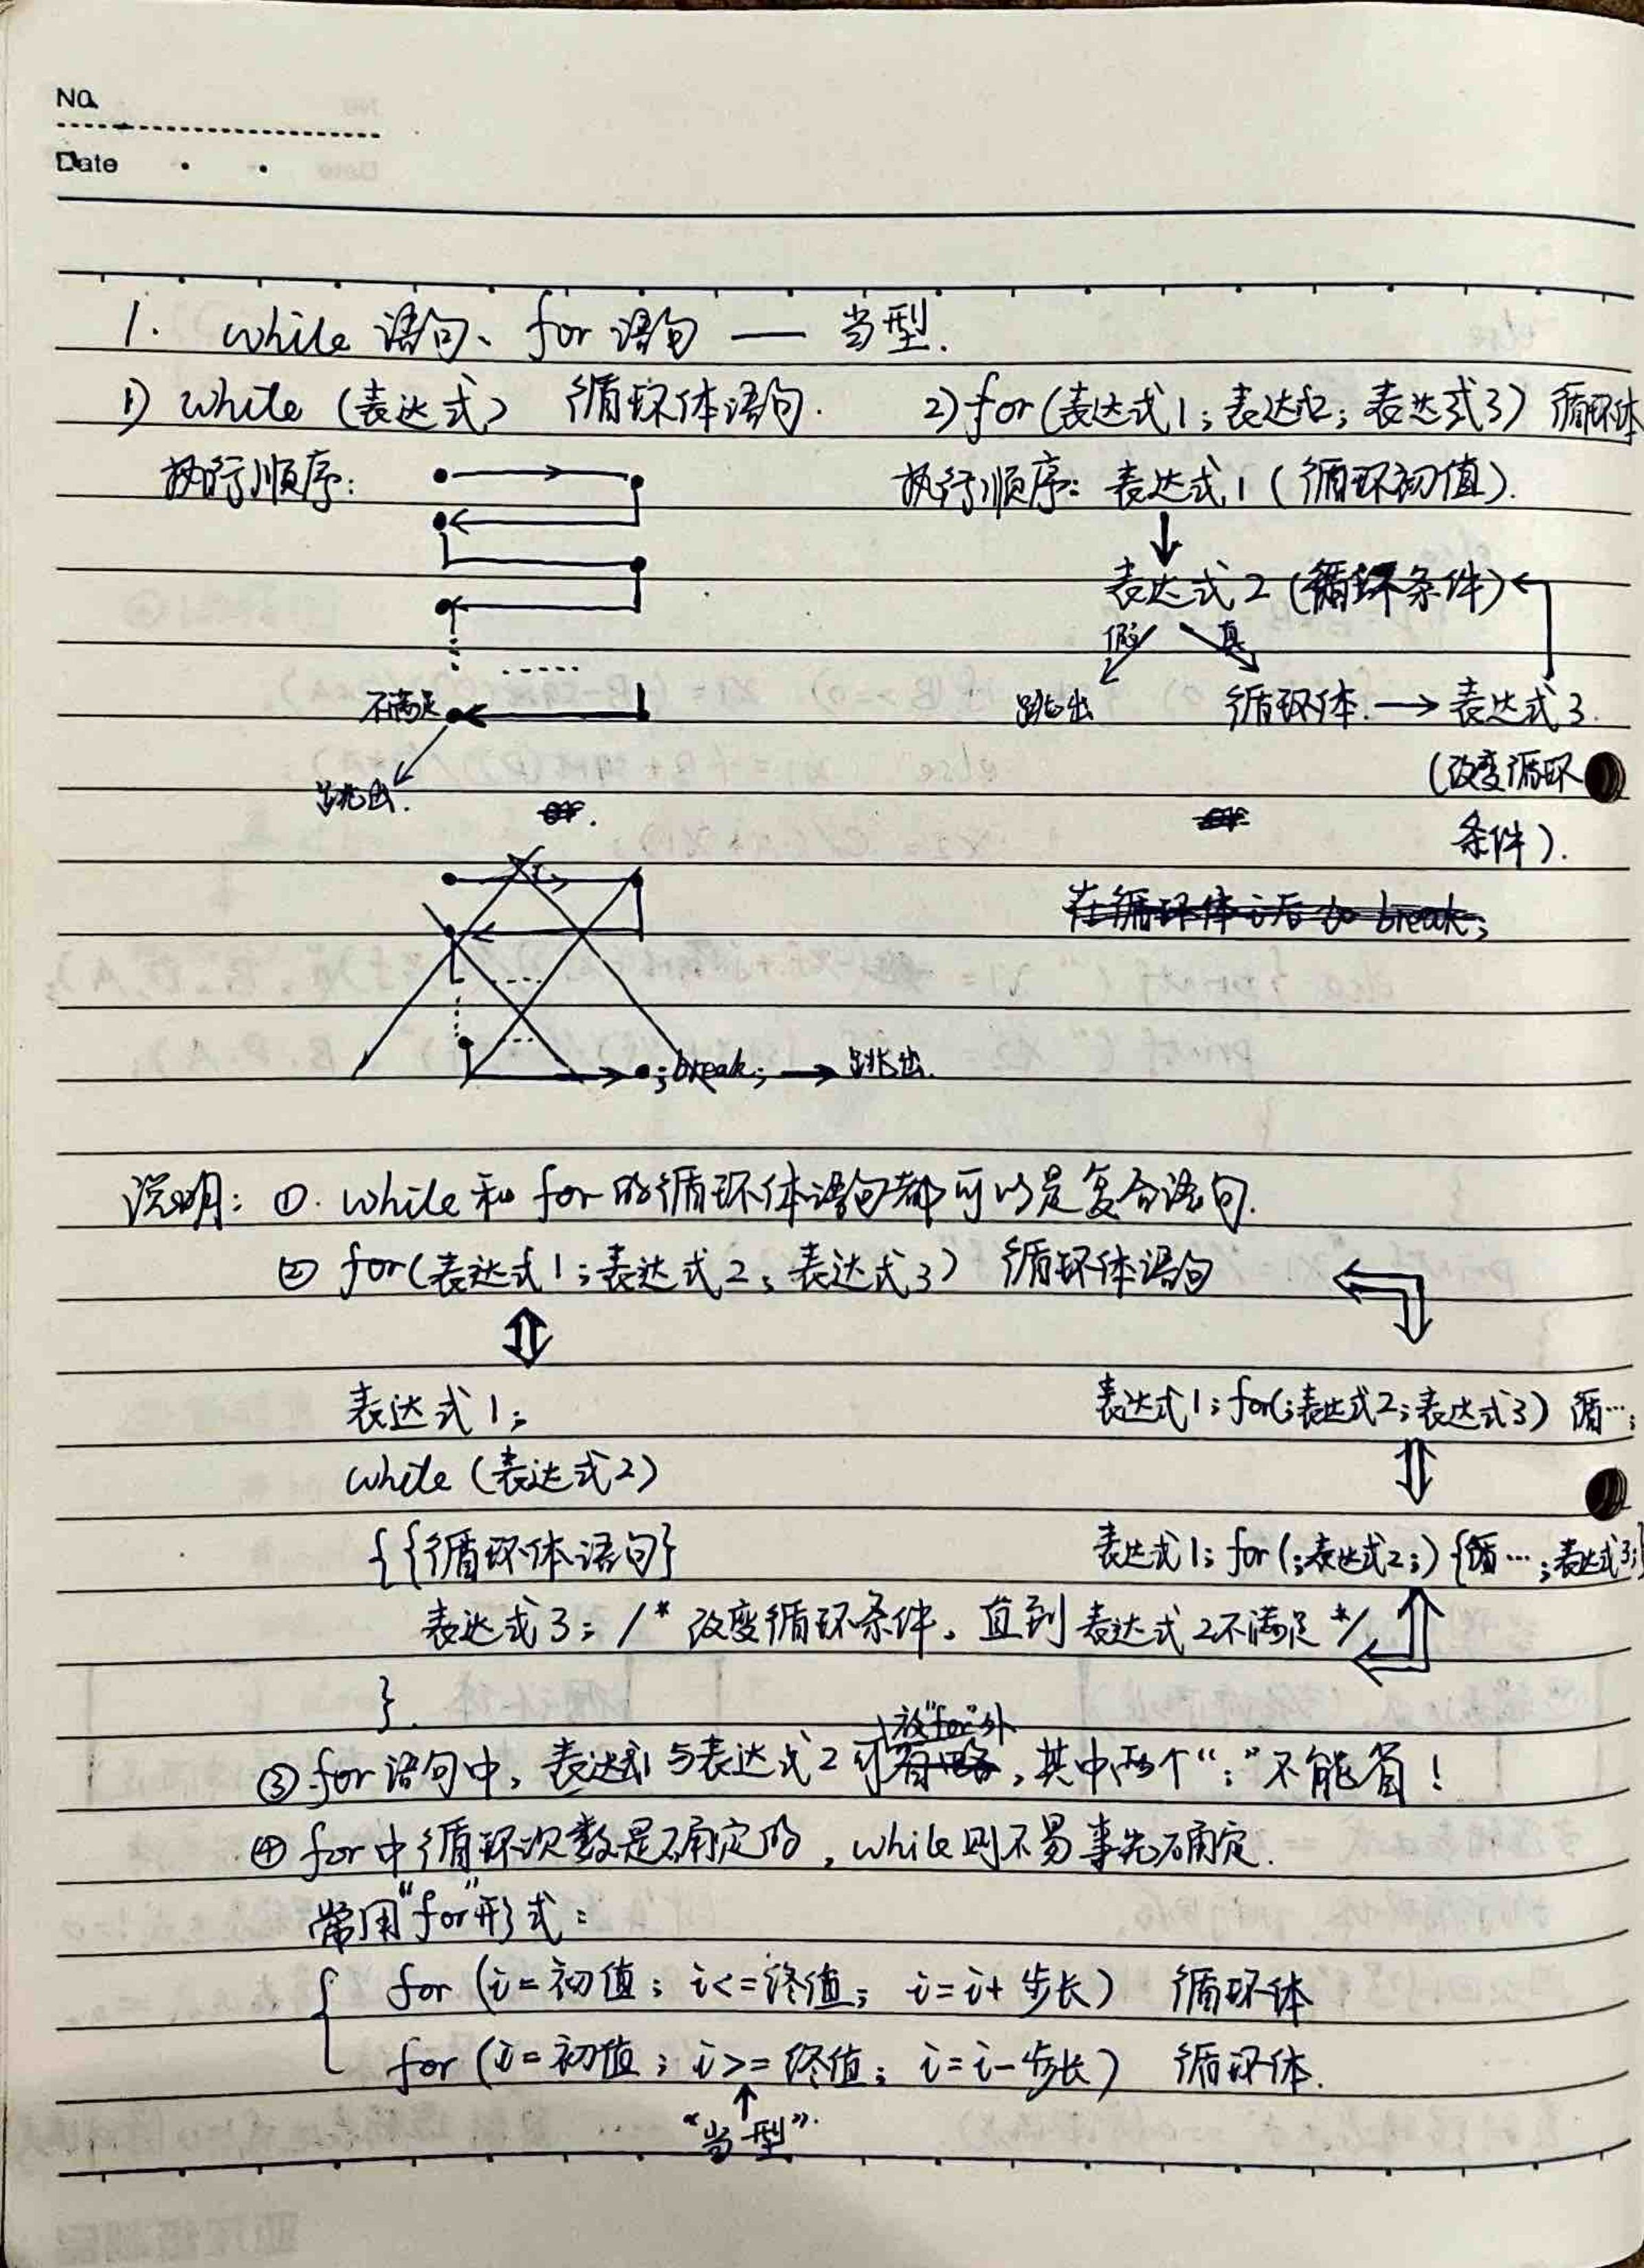 No.
Date
1. while 语句、for 语句 — 当型.
1) while (表达式) 循环体语句.
执行顺序:
不满足
跳出.
or.
;break; → 跳出.
2) for (表达式1; 表达式2; 表达式3) 循环体
执行顺序: 表达式1 (循环初值).
表达式2 (循环条件)
假 真
跳出 循环体. → 表达式3.
(改变循环
条件).
or
在循环体之后 to break;
说明: ①. while 和 for 的循环体语句都可以是复合语句.
② for(表达式1; 表达式2; 表达式3) 循环体语句
表达式1;
while (表达式2)
{ {循环体语句}
表达式3; /* 改变循环条件。直到表达式2不满足 */
}.
表达式1; for(;表达式2;表达式3) 循…;
表达式1; for(;表达式2;) {循…;表达式3;}
放"for"外
③ for 语句中, 表达式1与表达式2可省略, 其中两个“;”不能省!
④ for 中循环次数是确定的, while则不易事先确定.
常用"for"形式:
for (i=初值; i<=终值; i=i+步长) 循环体
for (i=初值; i>=终值; i=i-步长) 循环体.
“当型”.